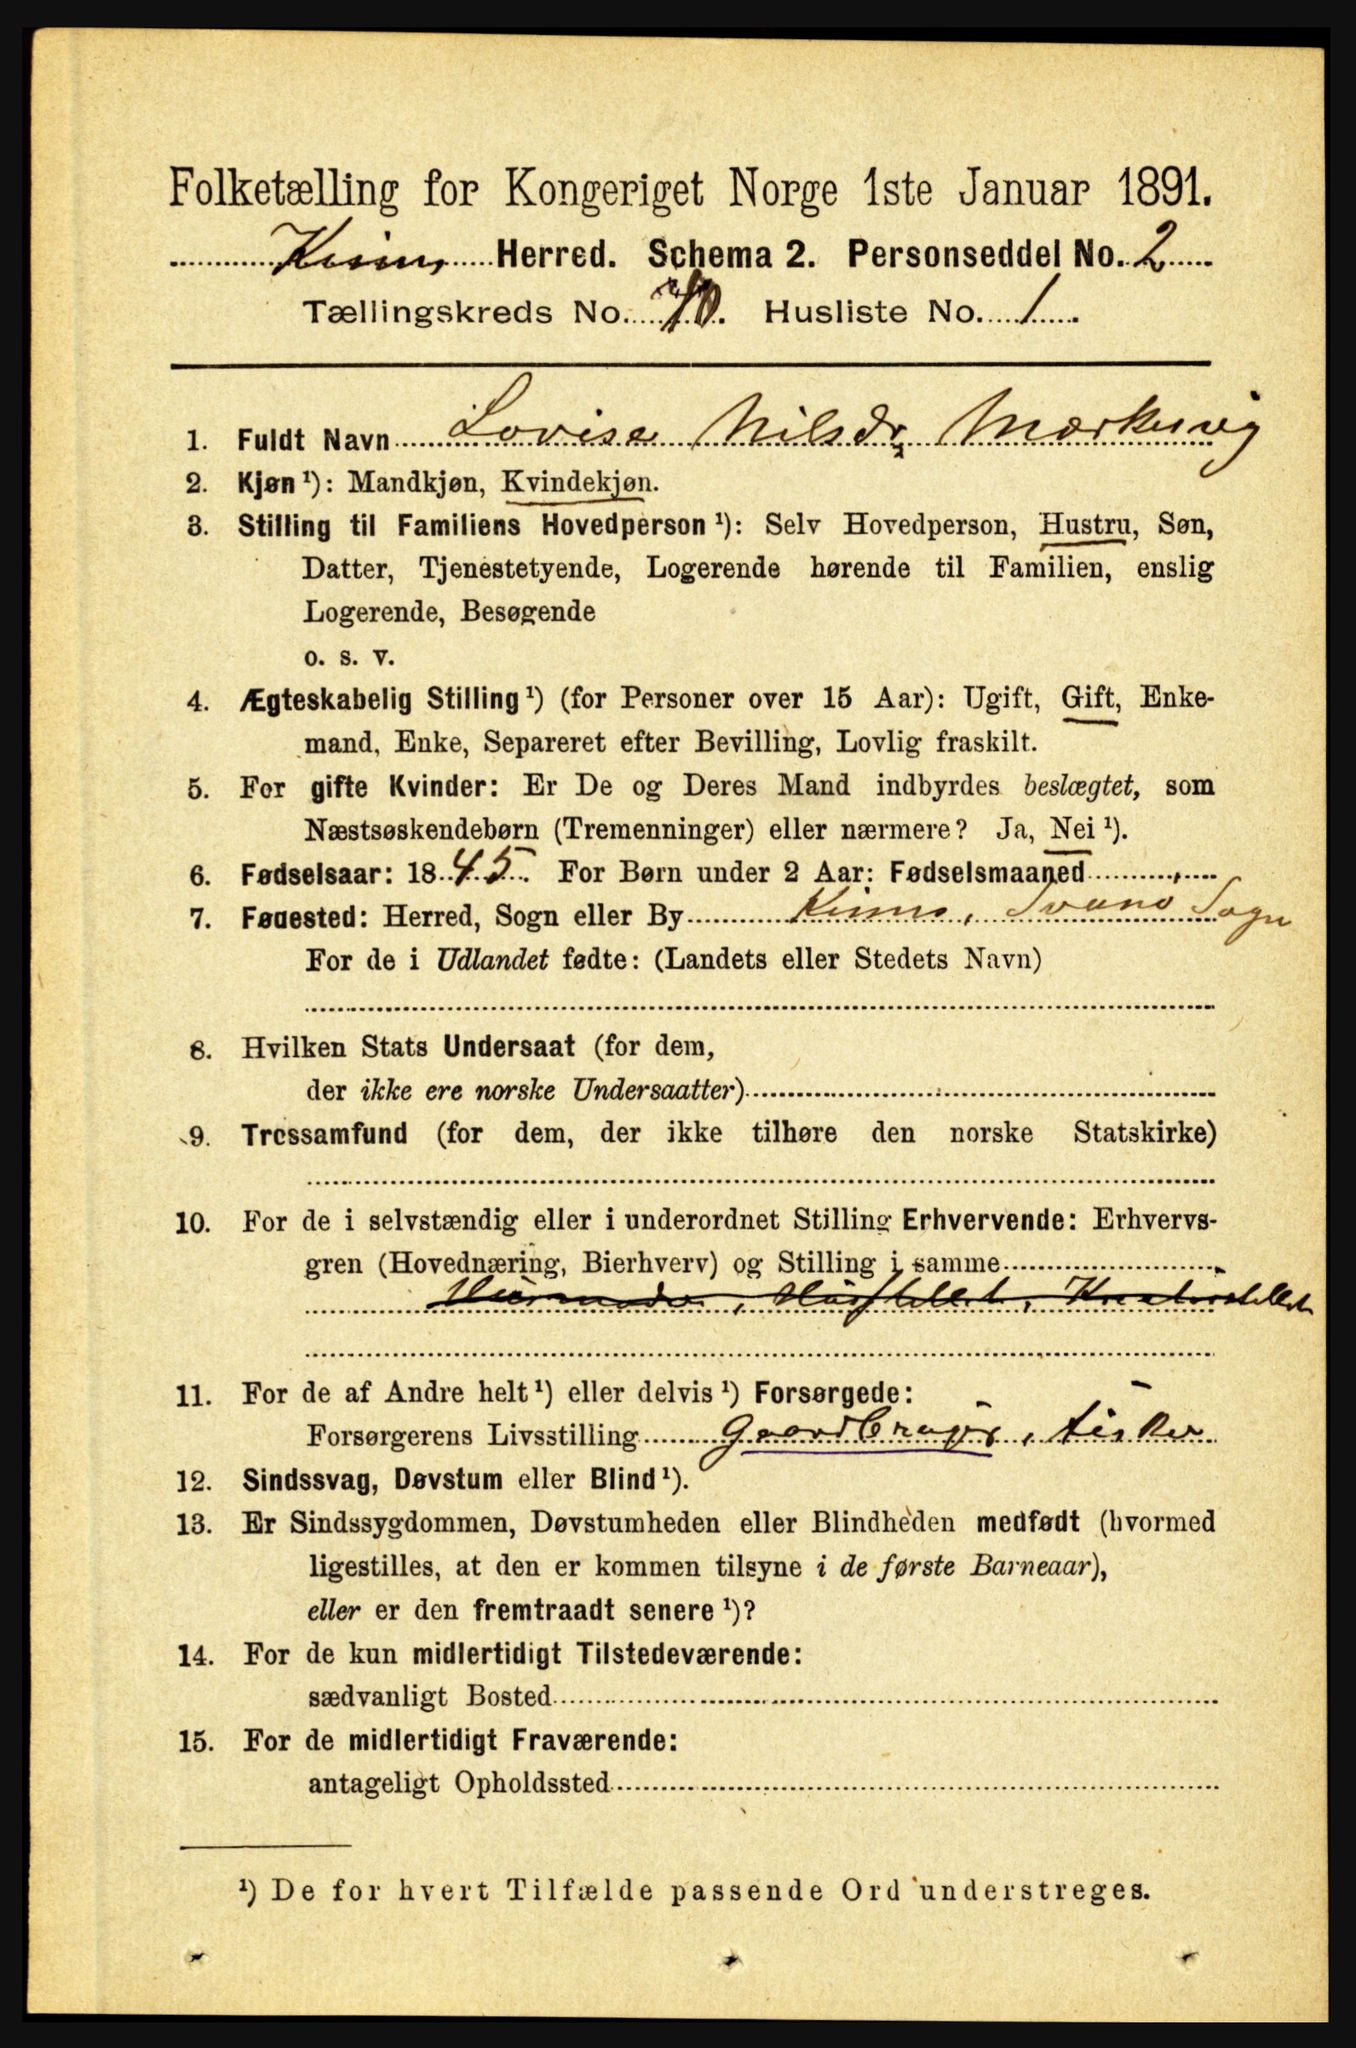 Folketælling for Kongeriget Norge 1ste Januar 1891.
Kinn Herred. Schema 2. Personseddel No. 2
Tællingskreds No. 10. Husliste No. 1
1. Fuldt Navn Lovise Nilsdr Markesvig
2. Kjøn ¹): Mandkjøn, Kvindekjøn.
3. Stilling til Familiens Hovedperson ¹): Selv Hovedperson, Hustru, Søn,
Datter, Tjenestetyende, Logerende hørende til Familien, enslig
Logerende, Besøgende
o. s. v.
4. Ægteskabelig Stilling ¹) (for Personer over 15 Aar): Ugift, Gift, Enke-
mand, Enke, Separeret efter Bevilling, Lovlig fraskilt.
5. For gifte Kvinder: Er De og Deres Mand indbyrdes beslægtet, som
Næstsøskendebørn (Tremenninger) eller nærmere? Ja, Nei ¹).
6. Fødselsaar: 1845. For Børn under 2 Aar: Fødselsmaaned
7. Fødested: Herred, Sogn eller By Kinn, Svanø Sogn
For de i Udlandet fødte: (Landets eller Stedets Navn)
8. Hvilken Stats Undersaat (for dem,
der ikke ere norske Undersaatter)
9. Trossamfund (for dem, der ikke tilhøre den norske Statskirke)
10. For de i selvstændig eller i underordnet Stilling Erhvervende: Erhvervs-
gren (Hovednæring, Bierhverv) og Stilling i samme
Husmoder, Husstellet, Kreaturstellet
11. For de af Andre helt ¹) eller delvis ¹) Forsørgede:
Forsørgerens Livsstilling Gaardbruger, Fisker
12. Sindssvag, Døvstum eller Blind ¹).
13. Er Sindssygdommen, Døvstumheden eller Blindheden medfødt (hvormed
ligestilles, at den er kommen tilsyne i de første Barneaar),
eller er den fremtraadt senere ¹)?
14. For de kun midlertidigt Tilstedeværende:
sædvanligt Bosted
15. For de midlertidigt Fraværende:
antageligt Opholdssted
¹) De for hvert Tilfælde passende Ord understreges.